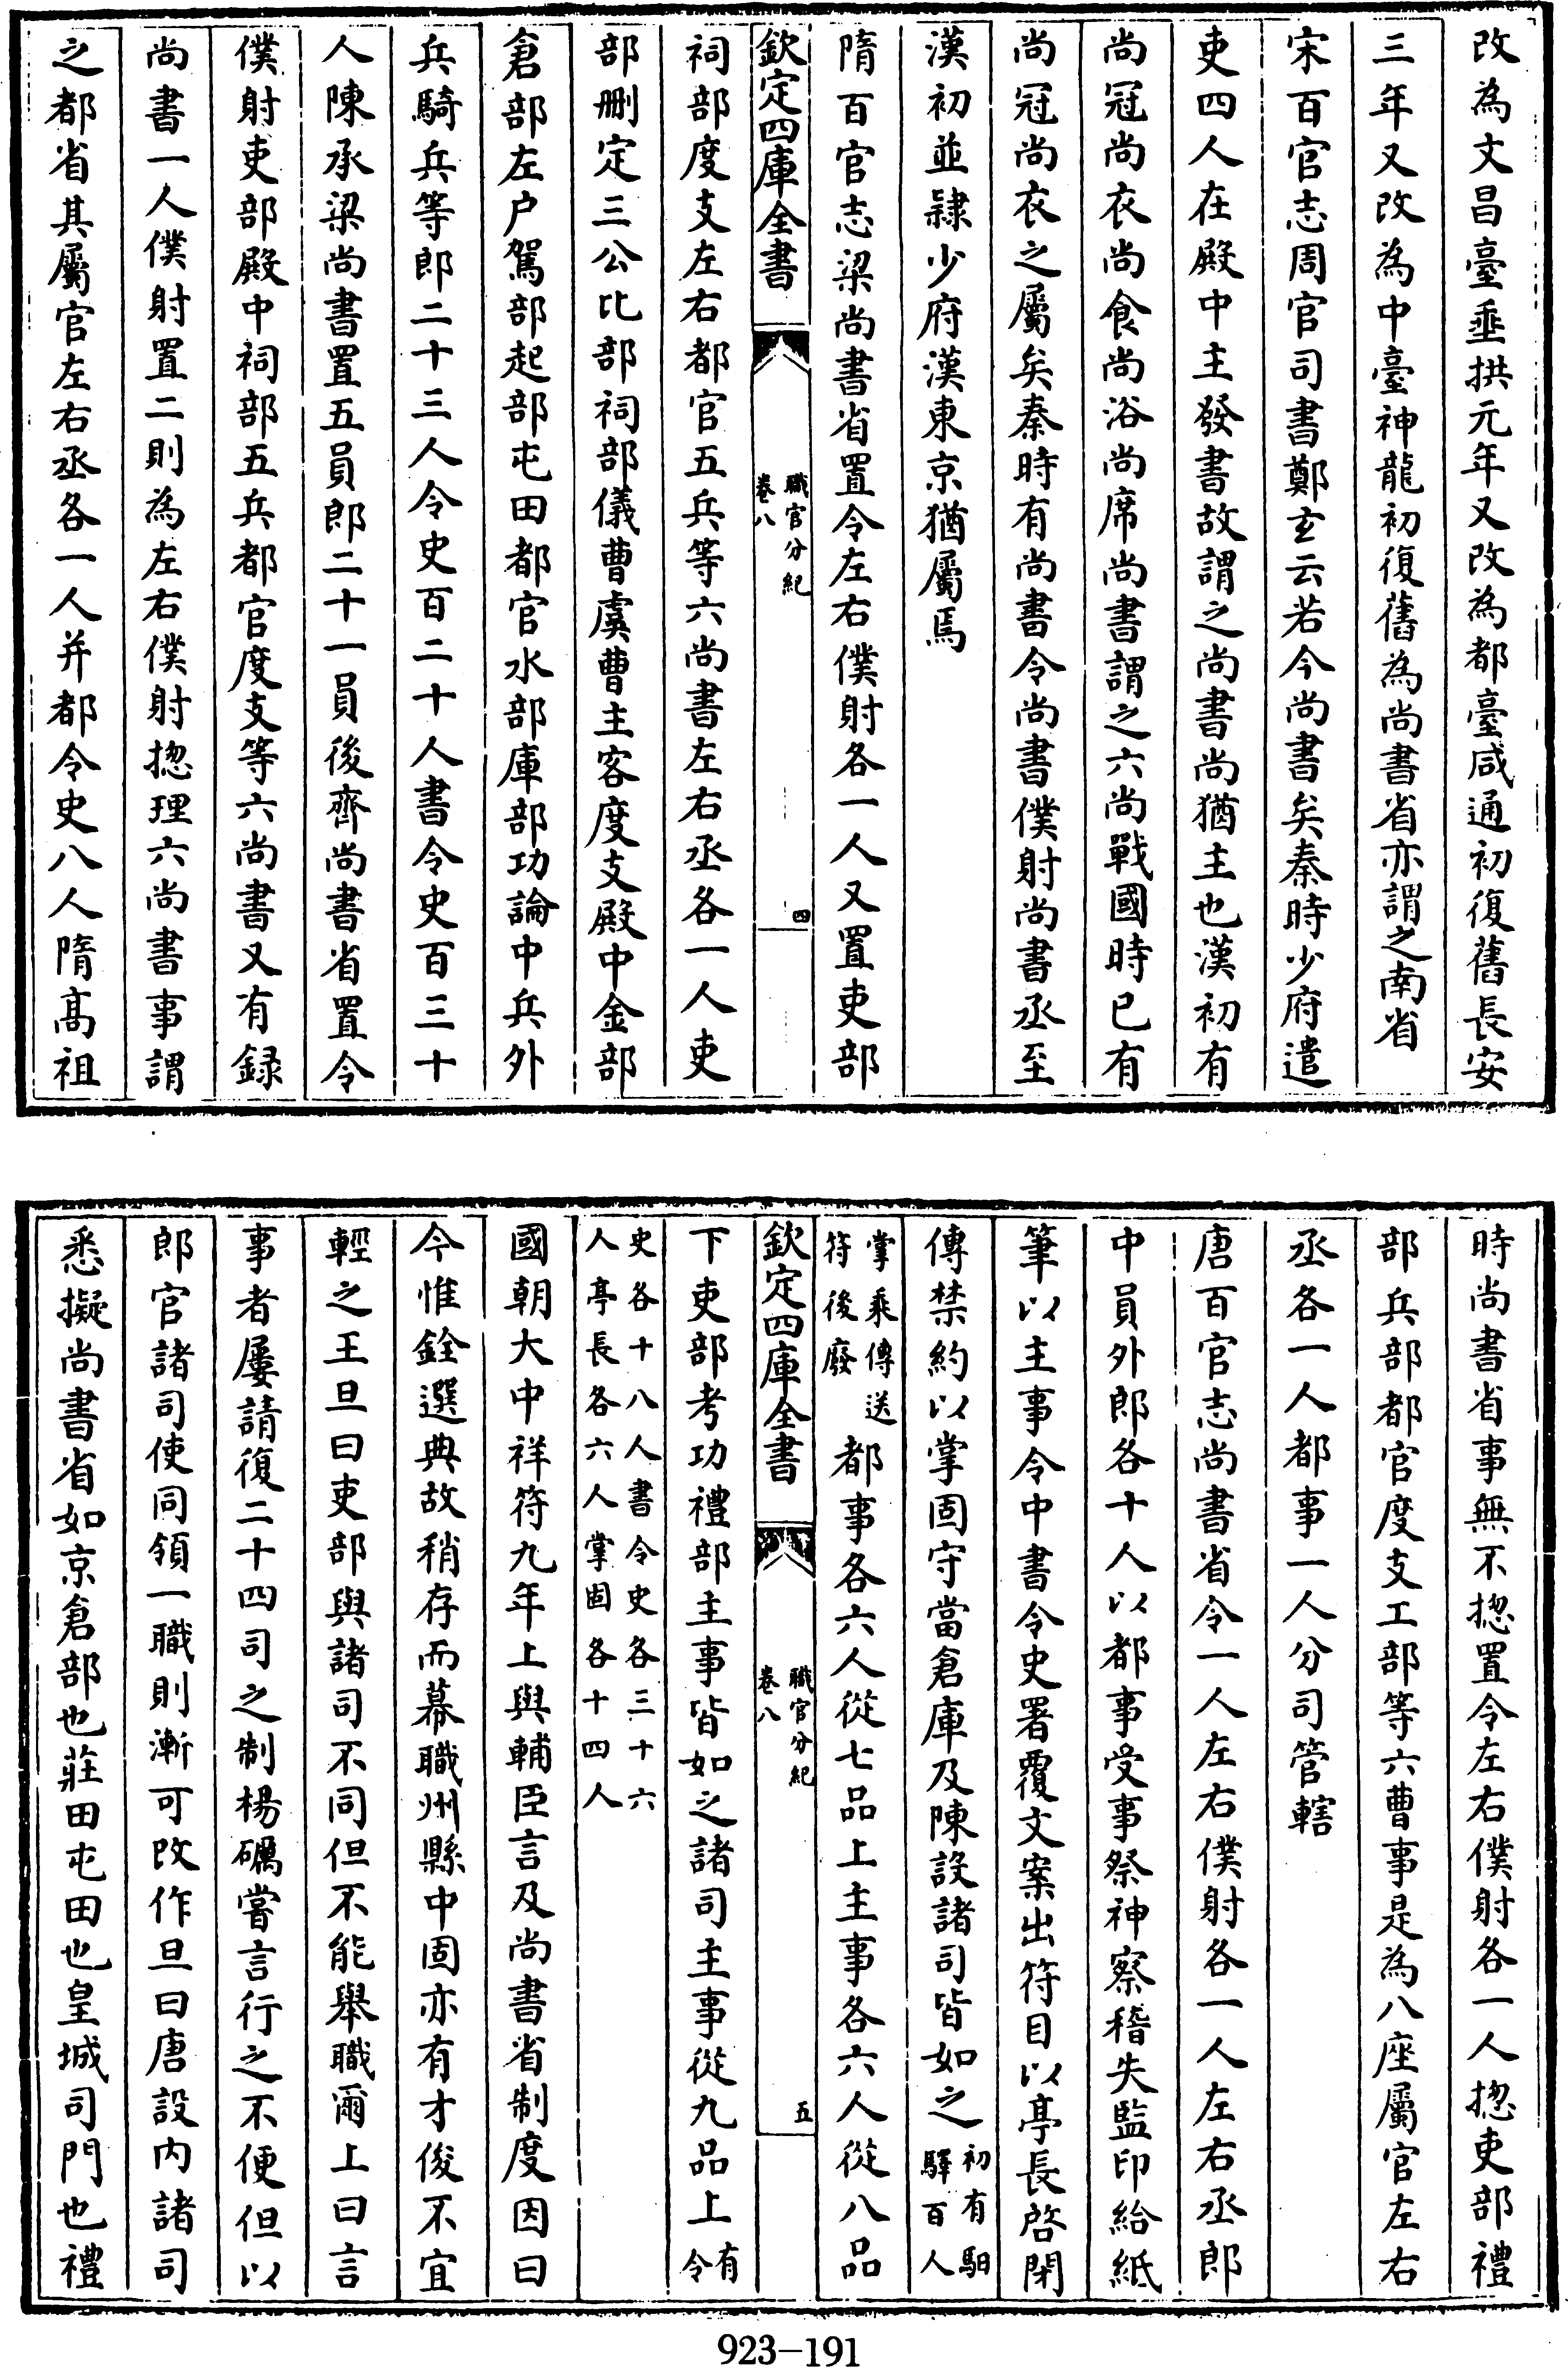 改為文昌臺垂拱元年又改為都臺咸通初復舊長安
三年又改為中臺神龍初復舊為尚書省亦謂之南省
宋百官志周官司書鄭玄云若今尚書矣秦時少府遣
吏四人在殿中主發書故謂之尚書尚猶主也漢初有
尚冠尚衣尚食尚浴尚席尚書謂之六尚戰國時已有
尚冠尚衣之屬矣秦時有尚書令尚書僕射尚書丞至
漢初並隷少府漢東京猶屬焉
隋百官志梁尚書省置令左右僕射各一人又置吏部
欽定四庫全書
職官分紀
卷八
四
祠部度支左右都官五兵等六尚書左右丞各一人吏
部刪定三公比部祠部儀曹虞曹主客度支殿中金部
倉部左户駕部起部屯田都官水部庫部功論中兵外
兵騎兵等郎二十三人令史百二十人書令史百三十
人陳承梁尚書置五員郎二十一員後齊尚書省置令
僕射吏部殿中祠部五兵都官度支等六尚書又有録
尚書一人僕射置二則為左右僕射揔理六尚書事謂
之都省其屬官左右丞各一人并都令史八人隋髙祖
時尚書省事無不揔置令左右僕射各一人揔吏部禮
部兵部都官度支工部等六曹事是為八座屬官左右
丞各一人都事一人分司管轄
唐百官志尚書省令一人左右僕射各一人左右丞郎
中員外郎各十人以都事受事祭神察稽失監印給紙
筆以主事令中書令史署覆文案出符目以亭長啓閉
傳禁約以掌固守當倉庫及陳設諸司皆如之初有馹驛百人
掌乘傳送符後廢都事各六人從七品上主事各六人從八品
欽定四庫全書
職官分紀
卷八
五
下吏部考功禮部主事皆如之諸司主事從九品上有令
史各十八人書令史各三十六人亭長各六人掌固各十四人
國朝大中祥符九年上與輔臣言及尚書省制度因曰
今惟銓選典故稍存而幕職州縣中固亦有才俊不宜
輕之王旦曰吏部與諸司不同但不能舉職爾上曰言
事者屢請復二十四司之制楊礪嘗言行之不便但以
郎官諸司使同領一職則漸可改作旦曰唐設内諸司
悉擬尚書省如京倉部也莊田屯田也皇城司門也禮
923-191